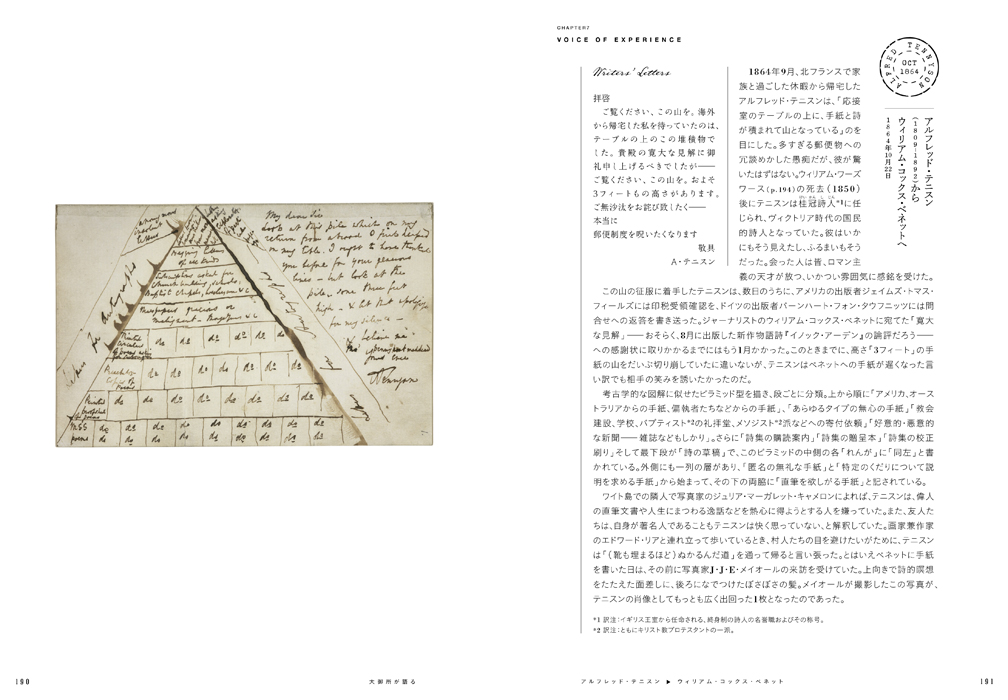 My dear Sir
Look at this pile which on my
return from abroad I find heaped
on my table. I ought to have thanked
you before for your generous
lines — but look at this
pile some three feet
high — & let that apologize
for my silence —
believe me
Tennyson
do do do do do
do do do do do do do
do do do do do do do
MSS do do do do do do do
poems do do do do do do do
190
大御所が語る
CHAPTER7
VOICE OF EXPERIENCE
Writers' Letters
拝啓
ご覧ください、この山を。海外
から帰宅した私を待っていたのは、
テーブルの上のこの堆積物で
した。貴殿の寛大な見解に御
礼申し上げるべきでしたが——
ご覧ください、この山を。およそ
3フィートもの高さがあります。
ご無沙汰をお詫び致したく——
本当に
郵便制度を呪いたくなります
敬具
A・テニスン
ALFRED TENNYSON
OCT
1864
アルフレッド・テニスン
(1809-1892)から
ウィリアム・コックス・ベネットへ
1864年10月22日
1864年9月、北フランスで家
族と過ごした休暇から帰宅した
アルフレッド・テニスンは、「応接
室のテーブルの上に、手紙と詩
が積まれて山となっている」のを
目にした。多すぎる郵便物への
冗談めかした愚痴だが、彼が驚
いたはずはない。ウィリアム・ワーズ
ワース(p.194)の死去(1850)
後にテニスンは桂冠詩人*1に任
じられ、ヴィクトリア時代の国民
的詩人となっていた。彼はいか
にもそう見えたし、ふるまいもそう
だった。会った人は皆、ロマン主
義の天才が放つ、いかつい雰囲気に感銘を受けた。
この山の征服に着手したテニスンは、数日のうちに、アメリカの出版者ジェイムズ・トマス・
フィールズには印税受領確認を、ドイツの出版者バーンハート・フォン・タウフニッツには問
合せへの返答を書き送った。ジャーナリストのウィリアム・コックス・ベネットに宛てた「寛大
な見解」——おそらく、8月に出版した新作物語詩『イノック・アーデン』の論評だろう——
への感謝状に取りかかるまでにはもう1月かかった。このときまでに、高さ「3フィート」の手
紙の山をだいぶ切り崩していたに違いないが、テニスンはベネットへの手紙が遅くなった言
い訳でも相手の笑みを誘いたかったのだ。
考古学的な図解に似せたピラミッド型を描き、段ごとに分類。上から順に「アメリカ、オース
トラリアからの手紙、偏執者たちなどからの手紙」、「あらゆるタイプの無心の手紙」「教会
建設、学校、バプティスト*2の礼拝堂、メソジスト*2派などへの寄付依頼」「好意的・悪意的
な新聞——雑誌などもしかり」。さらに「詩集の購読案内」「詩集の贈呈本」「詩集の校正
刷り」そして最下段が「詩の草稿」で、このピラミッドの中側の各「れんが」に「同左」と書
かれている。外側にも一列の層があり、「匿名の無礼な手紙」と「特定のくだりについて説
明を求める手紙」から始まって、その下の両脇に「直筆を欲しがる手紙」と記されている。
ワイト島での隣人で写真家のジュリア・マーガレット・キャメロンによれば、テニスンは、偉人
の直筆文書や人生にまつわる逸話などを熱心に得ようとする人を嫌っていた。また、友人た
ちは、自身が著名人であることもテニスンは快く思っていない、と解釈していた。画家兼作家
のエドワード・リアと連れ立って歩いているとき、村人たちの目を避けたいがために、テニスン
は「(靴も埋まるほど)ぬかるんだ道」を通って帰ると言い張った。とはいえベネットに手紙
を書いた日は、その前に写真家J・J・E・メイオールの来訪を受けていた。上向きで詩的瞑想
をたたえた面差しに、後ろになでつけたぼさぼさの髪。メイオールが撮影したこの写真が、
テニスンの肖像としてもっとも広く出回った1枚となったのであった。
*1 訳注：イギリス王室から任命される、終身制の詩人の名誉職およびその称号。
*2 訳注：ともにキリスト教プロテスタントの一派。
アルフレッド・テニスン ▶ ウィリアム・コックス・ベネット
191